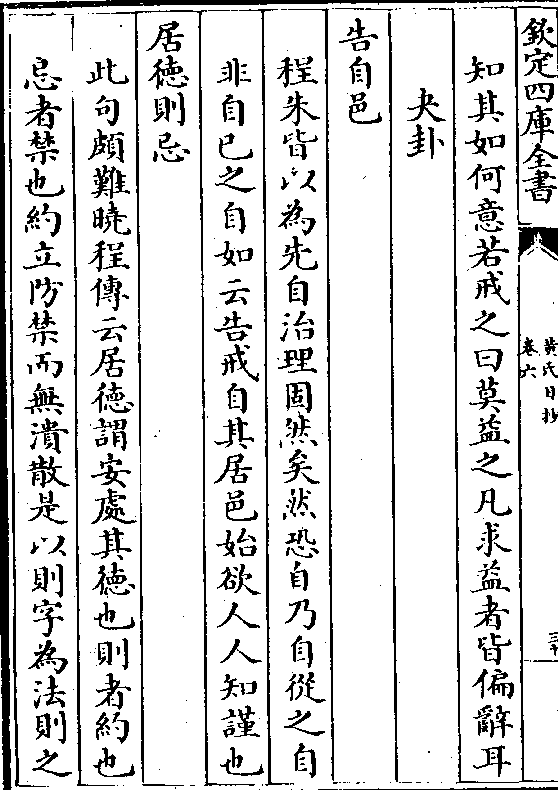 欽定四庫全書
黄氏日抄
卷六
知其如何意若戒之曰莫益之凡求益者皆偏辭耳
夬卦
告自邑
程朱皆以為先自治理固然矣然恐自乃自從之自
非自已之自如云告戒自其居邑始欲人人知謹也
居德則忌
此句頗難曉程傳云居德謂安處其德也則者約也
忌者禁也約立防禁而無潰散是以則字為法則之